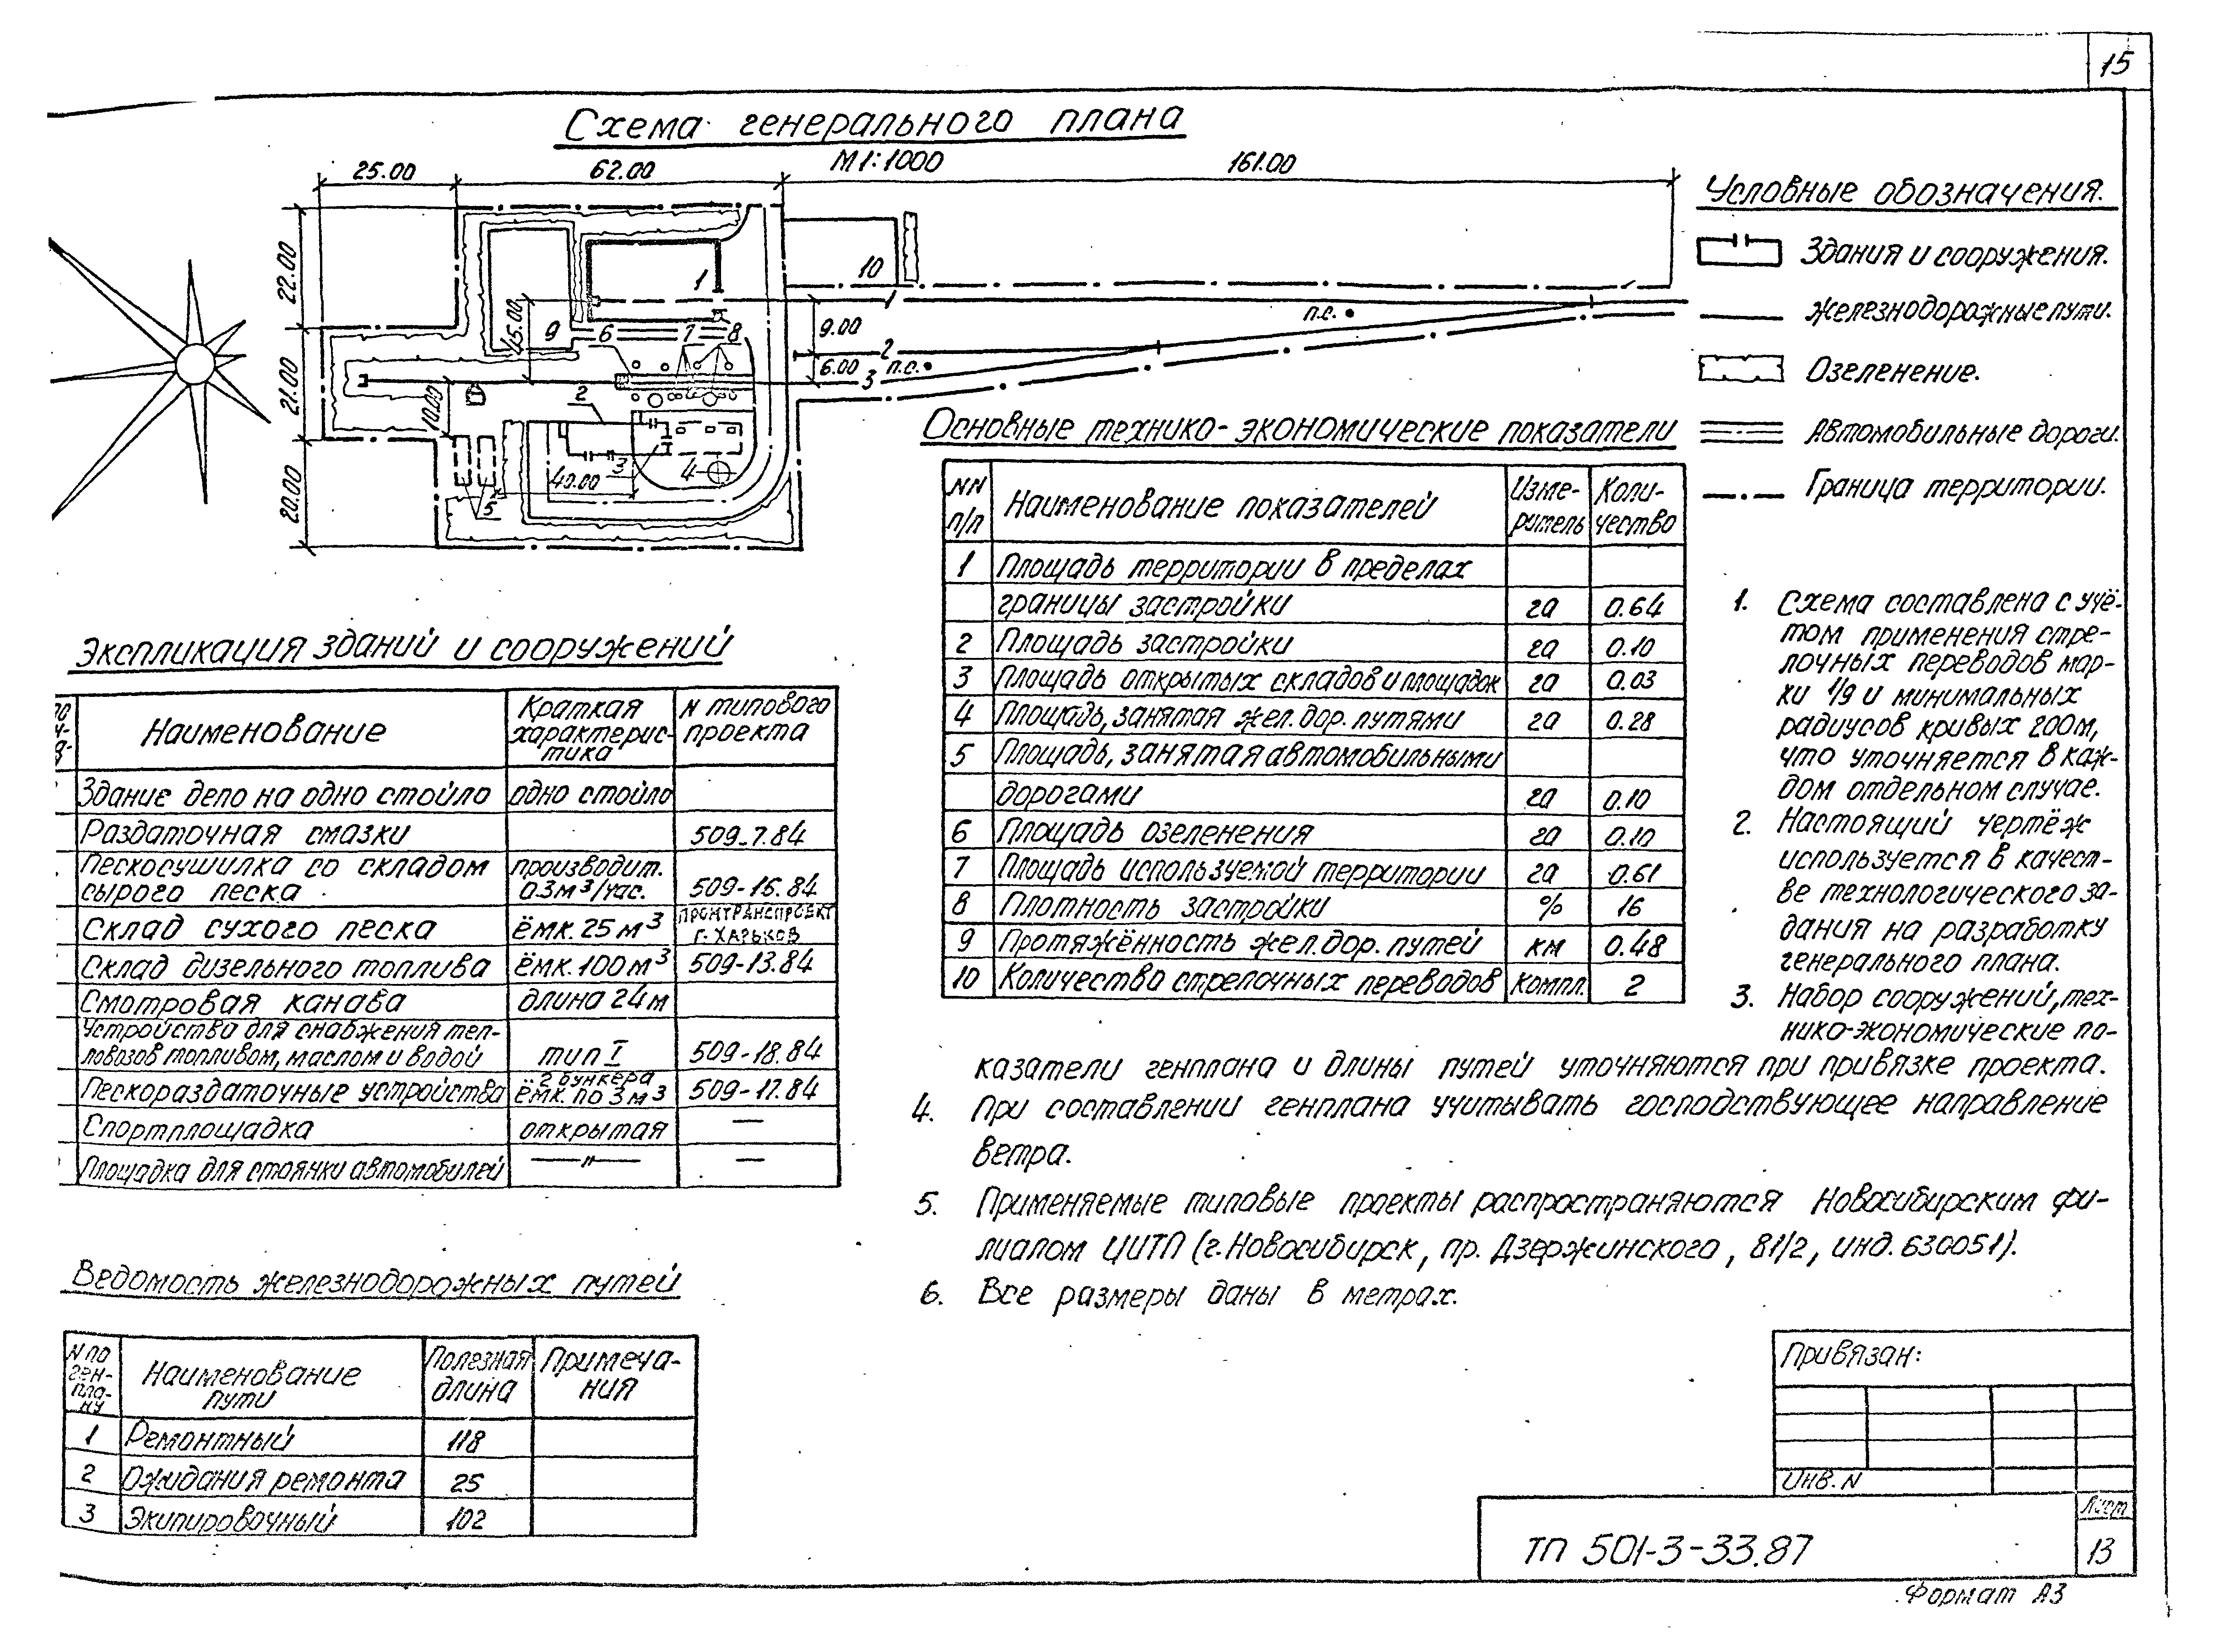 15
Схема генерального плана
М 1:1000
25.00 62.00 161.00
22.00
21.00
20.00
15.00
10.00
40.00
9.00
6.00
п.с.
п.с.
1
10
1
9 6 7 8
2
3
2
3 4
5
Условные обозначения.
Здания и сооружения.
Железнодорожные пути.
Озеленение.
Автомобильные дороги.
Граница территории.
Основные технико-экономические показатели
NN п/п Наименование показателей Измеритель Количество
1 Площадь территории в пределах
границы застройки га 0.64
2 Площадь застройки га 0.10
3 Площадь открытых складов и площадок га 0.03
4 Площадь, занятая жел. дор. путями га 0.28
5 Площадь, занятая автомобильными
дорогами га 0.10
6 Площадь озеленения га 0.10
7 Площадь используемой территории га 0.61
8 Плотность застройки % 16
9 Протяжённость жел. дор. путей км 0.48
10 Количество стрелочных переводов компл. 2
Экспликация зданий и сооружений
Наименование Краткая характеристика N типового проекта
Здание депо на одно стойло одно стойло
Раздаточная смазки 509-7.84
Пескосушилка со складом производит.
сырого песка 0.3 м³/час. 509-16.84
Склад сухого песка ёмк. 25 м³ ПРОМТРАНСПРОЕКТ г. ХАРЬКОВ
Склад дизельного топлива ёмк. 100 м³ 509-13.84
Смотровая канава длина 24 м
Устройства для снабжения теп-
ловозов топливом, маслом и водой тип I 509-18.84
Пескораздаточные устройства 2 бункера ёмк. по 3 м³ 509-17.84
Спортплощадка открытая —
Площадка для стоянки автомобилей —"— —
Ведомость железнодорожных путей
N по ген-пла-ну Наименование пути Полезная длина Примеча-ния
1 Ремонтный 118
2 Ожидания ремонта 25
3 Экипировочный 102
1. Схема составлена с учё-
том применения стре-
лочных переводов мар-
ки 1/9 и минимальных
радиусов кривых 200м,
что уточняется в каж-
дом отдельном случае.
2. Настоящий чертёж
используется в качест-
ве технологического за-
дания на разработку
генерального плана.
3. Набор сооружений, тех-
нико-экономические по-
казатели генплана и длины путей уточняются при привязке проекта.
4. При составлении генплана учитывать господствующее направление
ветра.
5. Применяемые типовые проекты распространяются Новосибирским фи-
лиалом ЦИТП (г. Новосибирск, пр. Дзержинского, 81/2, инд. 630051).
6. Все размеры даны в метрах.
Привязан:
Инв. N
ТП 501-3-33.87
Лист
13
Формат А3